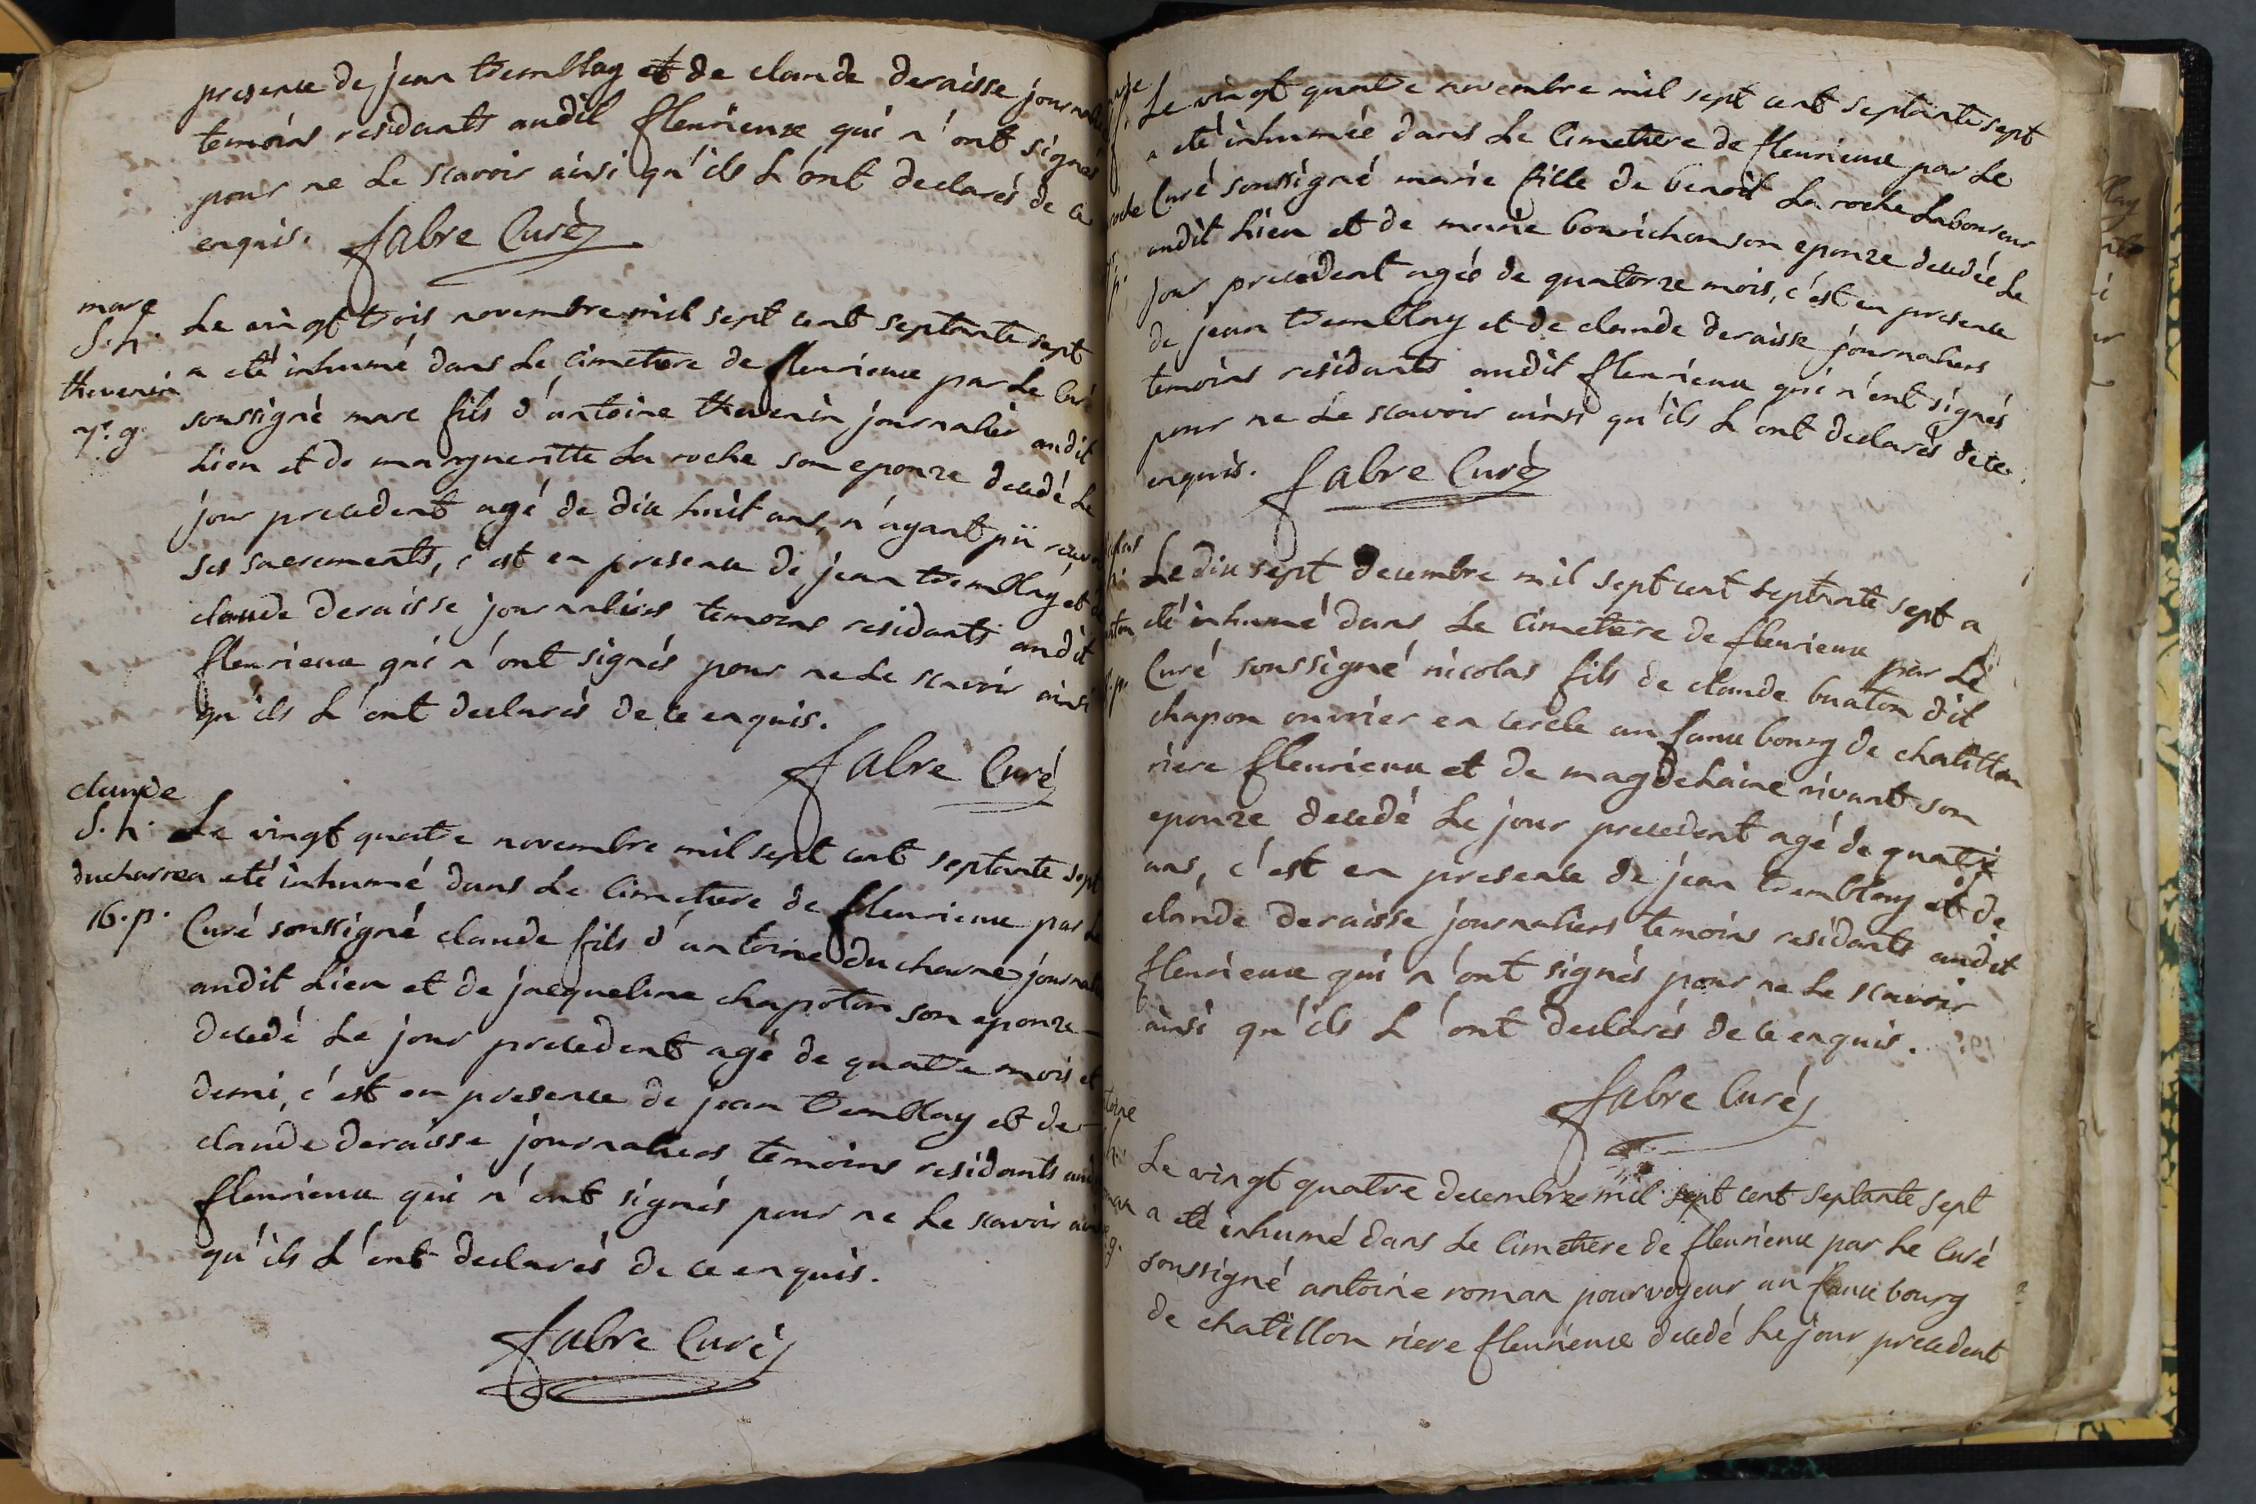 presence de jean tremblay et de claude deraisse journaliers
temoins residants audit fleurieux qui n'ont signés
pour ne Le scavoir ainsi qu'ils L'ont declarés de ce
enquis. fabre Curé
marc
S. h.
thevenin
7. g.
Le vingt trois novembre mil sept cent septante sept
a eté inhumé dans Le cimetiere de fleurieux par Le Curé
soussigné marc fils d'antoine thevenin journalier audit
Lieu et de margueritte La roche son epouze decedé Le
jour precedent agé de dix huit ans, n'ayant pû recevoir
ses sacrements, c'est en presence de jean tremblay et de
claude deraisse journaliers temoins residants audit
fleurieux qui n'ont signés pour ne Le scavoir ainsi
qu'ils L'ont declarés de ce enquis.
fabre Curé
claude
S. h.
ducharne
16. p.
Le vingt quatre novembre mil sept cent septante sept
a eté inhumé dans Le Cimetiere de fleurieux par Le
Curé soussigné claude fils d'antoine ducharne journalier
audit Lieu et de jacqueline chapoton son epouze
decedé Le jour precedent agé de quatre mois et
demi, c'est en presence de jean tremblay et de
claude deraisse journaliers temoins residants audit
fleurieux qui n'ont signés pour ne Le scavoir ainsi
qu'ils L'ont declarés de ce enquis.
fabre Curé
Le vingt quatre novembre mil sept cent septante sept
a eté inhumée dans Le Cimetiere de fleurieux par Le
Curé soussigné marie fille de benoit La roche Laboureur
audit Lieu et de marie bourichon son epouze decedée Le
jour precedent agée de quatorze mois, c'est en presence
de jean tremblay et de claude deraisse journaliers
temoins residants audit fleurieux qui n'ont signés
pour ne Le scavoir ainsi qu'ils L'ont declarés de ce
enquis. fabre Curé
Le dix sept decembre mil sept cent septante sept a
eté inhumé dans Le Cimetiere de fleurieux par Le
Curé soussigné nicolas fils de claude buaton dit
chapon ouvrier en cercle au faux bourg de chatillon
riere fleurieux et de magdelaine rivant son
epouze decedé Le jour precedent agé de quatre
ans, c'est en presence de jean tremblay et de
claude deraisse journaliers temoins residants audit
fleurieux qui n'ont signés pour ne Le scavoir
ainsi qu'ils L'ont declarés de ce enquis.
fabre Curé
Le vingt quatre decembre mil sept cent septante sept
a eté inhumé dans Le Cimetiere de fleurieux par Le Curé
soussigné antoine roman pourvoyeur au faux bourg
de chatillon riere fleurieux decedé Le jour precedent